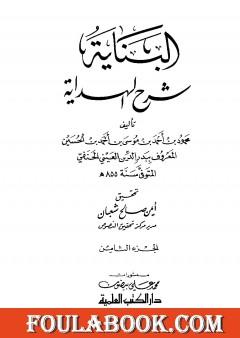 البناية
شرح الهداية
تأليف
محمود بن أحمد بن موسى بن أحمد بن الحسين
المعروف ببدر الدين العيني الحنفي
المتوفى سنة ٨٥٥ هـ
تحقيق
أيمن صالح شعبان
مدير مركز تحقيق النصوص
الجزء الثامن
منشورات
محمد علي بيضون
دار الكتب العلمية
FOULABOOK.COM